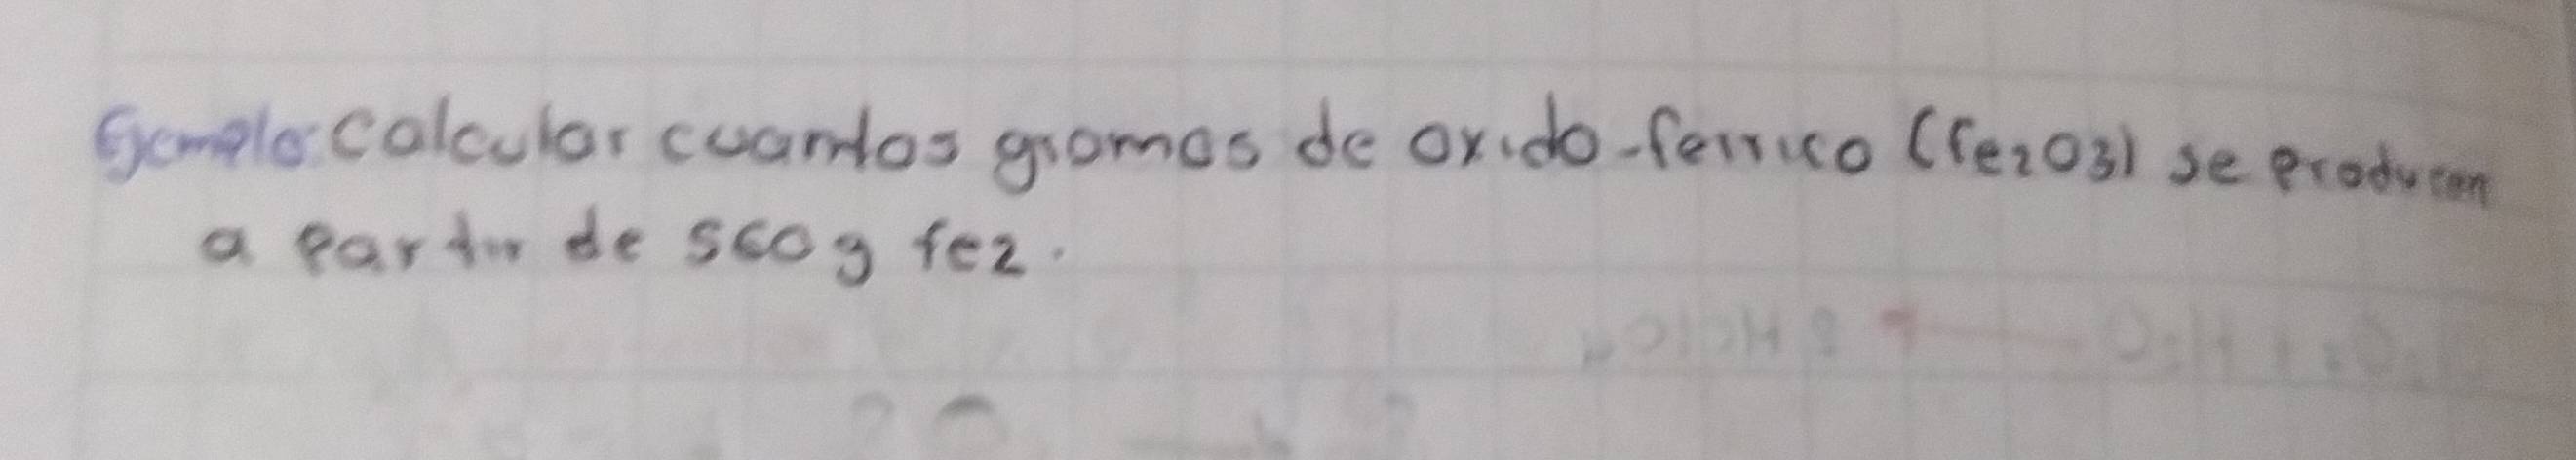 Ejemplo: calcular cuantos gramos de oxido-ferrico (fe2O3) se producen
a partir de 560g fe2.